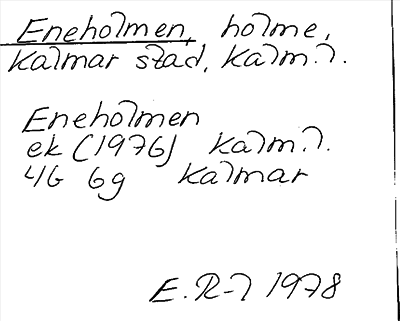 Eneholmen, holme,
Kalmar stad, Kalm.l.
Eneholmen
ek (1976) Kalm.l.
4G 6g Kalmar
E.R-l 1978